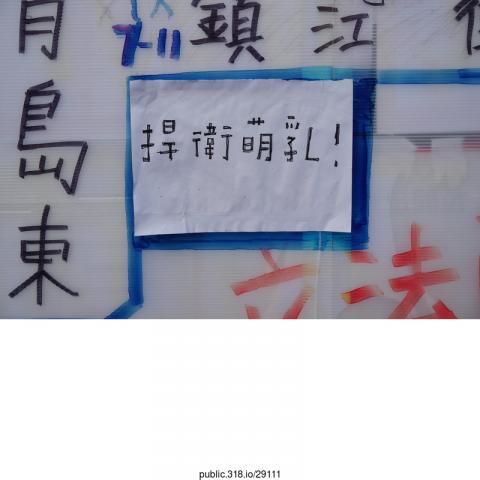 鎮江
捍衛萌乳!
青島東
立法
public.318.io/29111